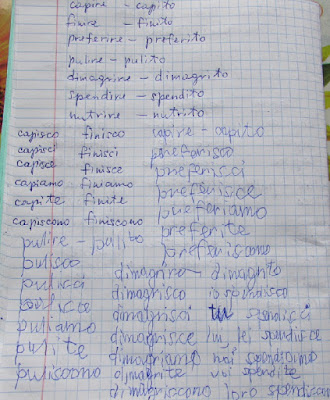 capire - capito
finire - finito
preferire - preferito
pulire - pulito
dimagrire - dimagrito
spendire - spendito
nutrire - nutrito
capisco finisco capire - capito
capisci finisci preferisco
capisce finisce preferisci
capiamo finiamo preferisce
capite finite preferiamo
capiscono finiscono preferite
pulire - pulito preferiscono
pulisco dimagrire - dimagrito
pulisci dimagrisco io spendisco
pulisce dimagrisci tu spendisci
puliamo dimagrisce lui lei spendisce
pulite dimagriamo noi spendiamo
puliscono dimagrite voi spendite
dimagriscono loro spendiscon